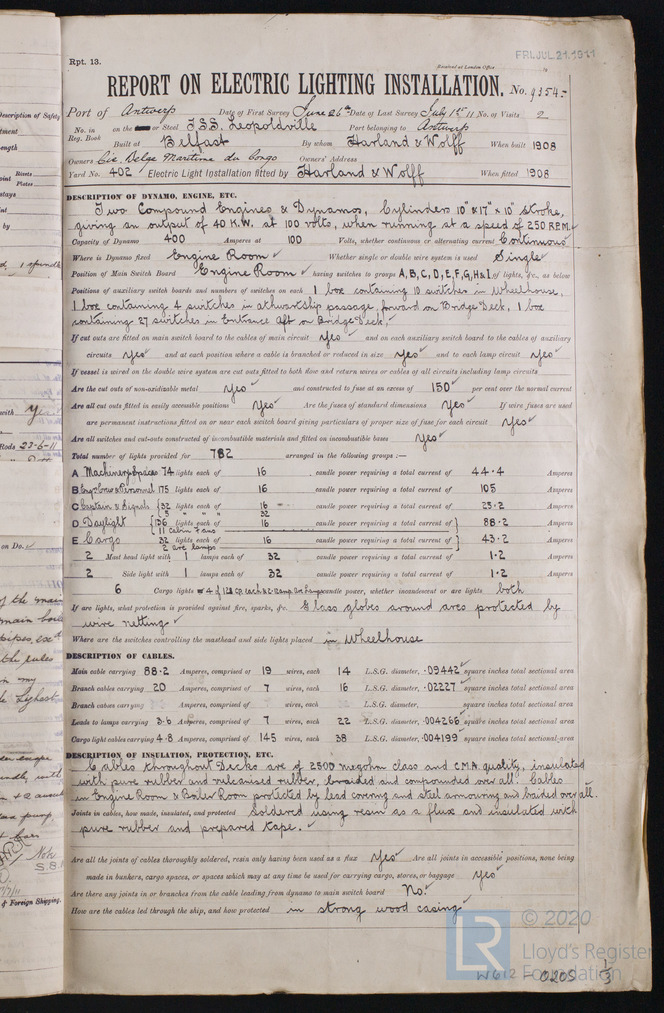 Rpt. 13.
Received at London Office
FRI. JUL. 21. 1911
REPORT ON ELECTRIC LIGHTING INSTALLATION. No. 9354.
Port of Antwerp Date of First Survey June 26th Date of Last Survey July 1st 11 No. of Visits 2
No. in Reg. Book on the Iron or Steel T.S.S. Leopoldville Port belonging to Antwerp
Built at Belfast By whom Harland & Wolff When built 1908
Owners Cie. Belge Maritime du Congo Owners' Address
Yard No. 402 Electric Light Installation fitted by Harland & Wolff When fitted 1908
DESCRIPTION OF DYNAMO, ENGINE, ETC.
Two Compound Engines & Dynamos, Cylinders 10" & 17" x 10" stroke,
giving an output of 40 K.W. at 100 volts, when running at a speed of 250 R.P.M.
Capacity of Dynamo 400 Amperes at 100 Volts, whether continuous or alternating current Continuous
Where is Dynamo fixed Engine Room Whether single or double wire system is used Single
Position of Main Switch Board Engine Room having switches to groups A, B, C, D, E, F, G, H & I of lights, &c., as below
Positions of auxiliary switch boards and numbers of switches on each 1 box containing 10 switches in Wheelhouse,
1 box containing 4 switches in athwartship passage, forward on Bridge Deck, 1 box
containing 27 switches in Entrance aft on Bridge Deck.
If cut outs are fitted on main switch board to the cables of main circuit yes and on each auxiliary switch board to the cables of auxiliary
circuits yes and at each position where a cable is branched or reduced in size yes and to each lamp circuit yes
If vessel is wired on the double wire system are cut outs fitted to both flow and return wires or cables of all circuits including lamp circuits
Are the cut outs of non-oxidizable metal yes and constructed to fuse at an excess of 150 per cent over the normal current
Are all cut outs fitted in easily accessible positions yes Are the fuses of standard dimensions yes If wire fuses are used
are permanent instructions fitted on or near each switch board giving particulars of proper size of fuse for each circuit yes
Are all switches and cut-outs constructed of incombustible materials and fitted on incombustible bases yes
Total number of lights provided for 782 arranged in the following groups :—
A Machinery Spaces 74 lights each of 16 candle power requiring a total current of 44.4 Amperes
B Engrs Crew & Personnel 175 lights each of 16 candle power requiring a total current of 105 Amperes
C Captain & Signals 32 lights each of 16 candle power requiring a total current of 25.2 Amperes
5 " " " 32
D Daylight 136 lights each of 16 candle power requiring a total current of 88.2 Amperes
11 Cabin Fans
E Cargo 32 lights each of 16 candle power requiring a total current of 43.2 Amperes
2 arc lamps
2 Mast head light with 1 lamps each of 32 candle power requiring a total current of 1.2 Amperes
2 Side light with 1 lamps each of 32 candle power requiring a total current of 1.2 Amperes
6 Cargo lights candle power, whether incandescent or arc lights both
If arc lights, what protection is provided against fire, sparks, &c. Glass globes around arcs protected by
wire netting
Where are the switches controlling the masthead and side lights placed in Wheelhouse
DESCRIPTION OF CABLES.
Main cable carrying 88.2 Amperes, comprised of 19 wires, each 14 L.S.G. diameter, .09442 square inches total sectional area
Branch cables carrying 20 Amperes, comprised of 7 wires, each 16 L.S.G. diameter, .02227 square inches total sectional area
Branch cables carrying Amperes, comprised of wires, each L.S.G. diameter, square inches total sectional area
Leads to lamps carrying 3.6 Amperes, comprised of 7 wires, each 22 L.S.G. diameter, .004266 square inches total sectional area
Cargo light cables carrying 4.8 Amperes, comprised of 145 wires, each 38 L.S.G. diameter, .004199 square inches total sectional area
DESCRIPTION OF INSULATION, PROTECTION, ETC.
Cables throughout Decks are of 2500 megohm class and C.M.A. quality, insulated
with pure rubber and vulcanised rubber, braided and compounded over all. Cables
in Engine Room & Boiler Room protected by lead covering and steel armouring and braided over all.
Joints in cables, how made, insulated, and protected Soldered using resin as a flux and insulated with
pure rubber and prepared tape.
Are all the joints of cables thoroughly soldered, resin only having been used as a flux yes Are all joints in accessible positions, none being
made in bunkers, cargo spaces, or spaces which may at any time be used for carrying cargo, stores, or baggage yes
Are there any joints in or branches from the cable leading from dynamo to main switch board No.
How are the cables led through the ship, and how protected in strong wood casing
© 2020
LR Lloyd's Register Foundation
W612-0205 1/3
Description of Safety
Rivets
Plates
stays
by
with yes
Rods 23-6-11
on Do.
of the main
pipes, ext
& Foreign Shipping.